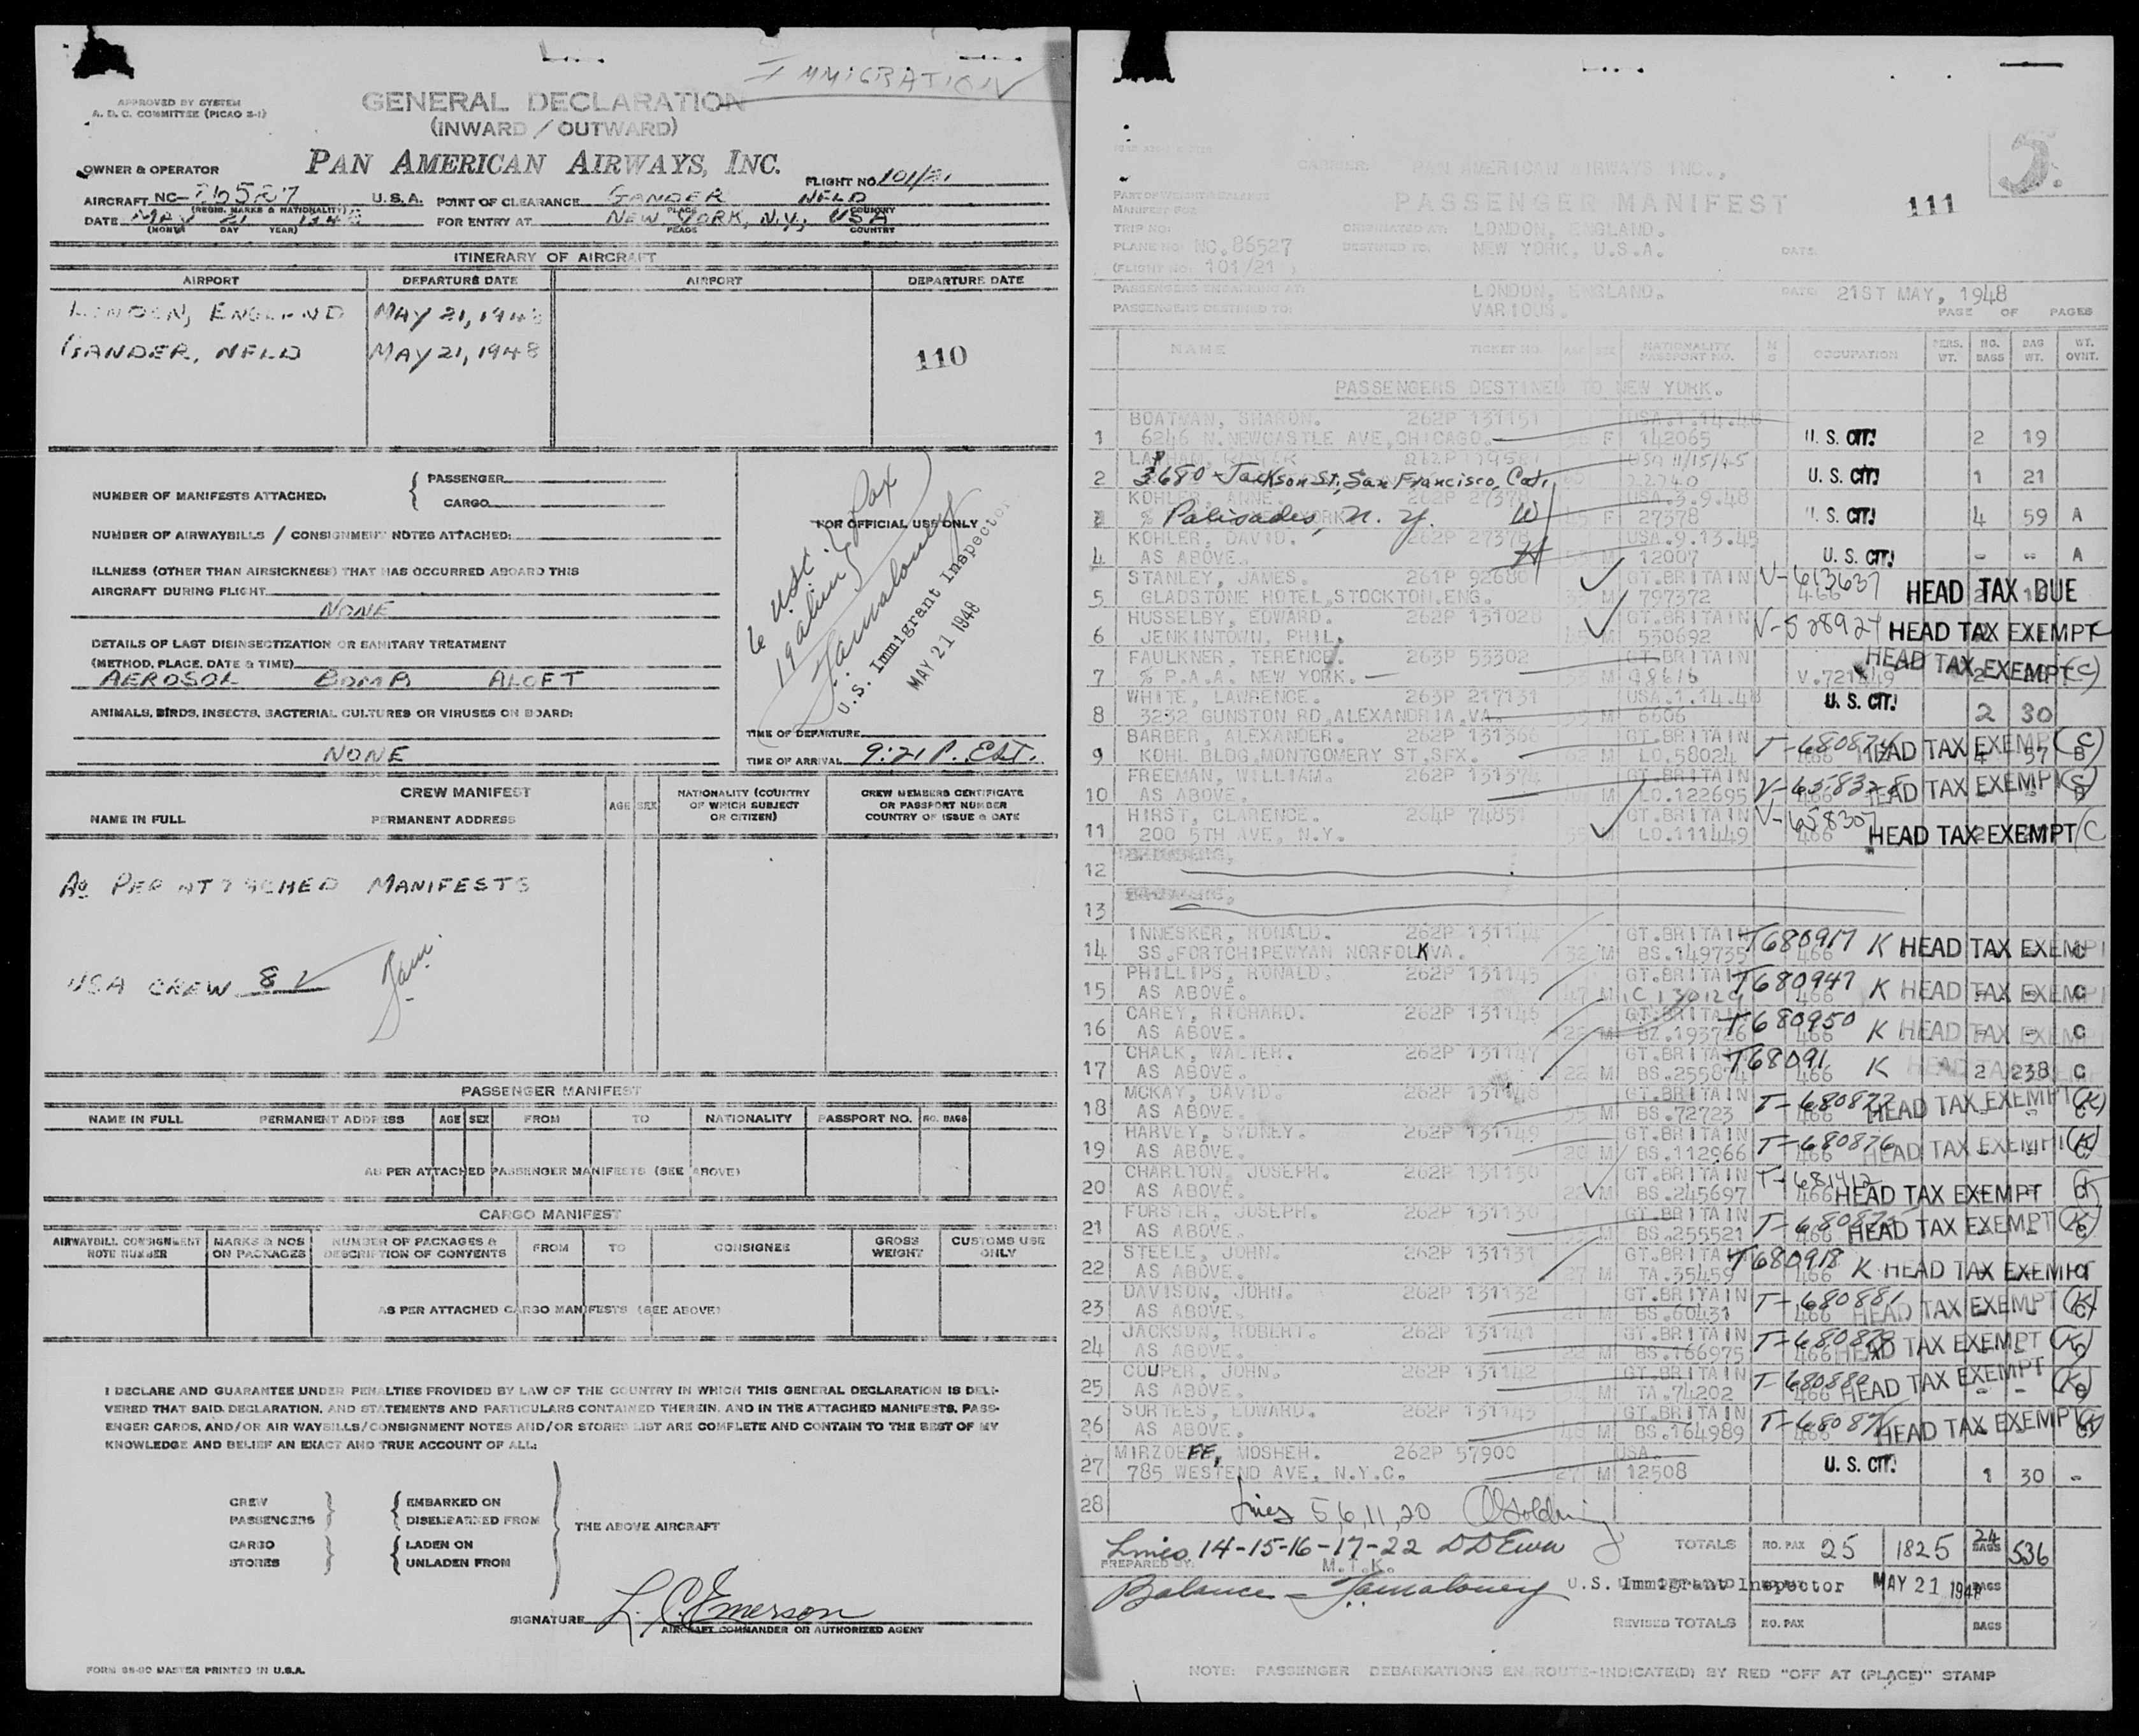 IMMIGRATION
APPROVED BY SYSTEM
A. D. C. COMMITTEE (PICAO S-1)
GENERAL DECLARATION
(INWARD / OUTWARD)
OWNER & OPERATOR
PAN AMERICAN AIRWAYS, INC.
FLIGHT NO. 101/21
AIRCRAFT NC- 86527 U.S.A. POINT OF CLEARANCE GANDER NFLD
(REGIS. MARKS & NATIONALITY) PLACE COUNTRY
DATE MAY 21 1948 FOR ENTRY AT NEW YORK, N.Y., USA
(MONTH DAY YEAR) PLACE COUNTRY
ITINERARY OF AIRCRAFT
AIRPORT DEPARTURE DATE AIRPORT DEPARTURE DATE
LONDON, ENGLAND MAY 21, 1948
GANDER, NFLD MAY 21, 1948
110
NUMBER OF MANIFESTS ATTACHED. { PASSENGER
CARGO
NUMBER OF AIRWAYBILLS / CONSIGNMENT NOTES ATTACHED:
ILLNESS (OTHER THAN AIRSICKNESS) THAT HAS OCCURRED ABOARD THIS
AIRCRAFT DURING FLIGHT
NONE
DETAILS OF LAST DISINSECTIZATION OR SANITARY TREATMENT
(METHOD, PLACE, DATE & TIME)
AEROSOL BOMB ALOFT
ANIMALS, BIRDS, INSECTS, BACTERIAL CULTURES OR VIRUSES ON BOARD:
NONE
FOR OFFICIAL USE ONLY
6 USC } Pax
19 alien
U.S. Immigrant Inspector
MAY 21 1948
TIME OF DEPARTURE
TIME OF ARRIVAL 9:21 P. EST.
CREW MANIFEST
NAME IN FULL PERMANENT ADDRESS AGE SEX NATIONALITY (COUNTRY OF WHICH SUBJECT OR CITIZEN) CREW MEMBERS CERTIFICATE OR PASSPORT NUMBER COUNTRY OF ISSUE & DATE
AS PER ATTACHED MANIFESTS
USA CREW 8
PASSENGER MANIFEST
NAME IN FULL PERMANENT ADDRESS AGE SEX FROM TO NATIONALITY PASSPORT NO. NO. BAGS
AS PER ATTACHED PASSENGER MANIFESTS (SEE ABOVE)
CARGO MANIFEST
AIRWAYBILL CONSIGNMENT NOTE NUMBER MARKS & NOS ON PACKAGES NUMBER OF PACKAGES & DESCRIPTION OF CONTENTS FROM TO CONSIGNEE GROSS WEIGHT CUSTOMS USE ONLY
AS PER ATTACHED CARGO MANIFESTS (SEE ABOVE)
I DECLARE AND GUARANTEE UNDER PENALTIES PROVIDED BY LAW OF THE COUNTRY IN WHICH THIS GENERAL DECLARATION IS DELI-
VERED THAT SAID. DECLARATION, AND STATEMENTS AND PARTICULARS CONTAINED THEREIN, AND IN THE ATTACHED MANIFESTS, PASS-
ENGER CARDS, AND/OR AIR WAYBILLS/CONSIGNMENT NOTES AND/OR STORES LIST ARE COMPLETE AND CONTAIN TO THE BEST OF MY
KNOWLEDGE AND BELIEF AN EXACT AND TRUE ACCOUNT OF ALL:
CREW EMBARKED ON
PASSENGERS DISEMBARKED FROM
THE ABOVE AIRCRAFT
CARGO LADEN ON
STORES UNLADEN FROM
SIGNATURE L. C. Emerson
AIRCRAFT COMMANDER OR AUTHORIZED AGENT
FORM 95-00 MASTER PRINTED IN U.S.A.
5.
CARRIER: PAN AMERICAN AIRWAYS INC.,
PART OF WEIGHT & BALANCE
MANIFEST FOR
PASSENGER MANIFEST
111
TRIP NO: ORIGINATED AT: LONDON, ENGLAND.
PLANE NO: NC.86527 DESTINED TO: NEW YORK, U.S.A. DATE
(FLIGHT NO: 101/21 )
PASSENGERS EMBARKING AT: LONDON, ENGLAND. DATE: 21ST MAY, 1948
PASSENGERS DESTINED TO: VARIOUS. PAGE OF PAGES
NAME TICKET NO. AGE SEX NATIONALITY PASSPORT NO. M S OCCUPATION PERS. WT. NO. BAGS BAG WT. WT. OVNT.
PASSENGERS DESTINED TO NEW YORK.
BOATMAN, SHARON. 262P 131151 USA.1.14.48
1 6246 N.NEWCASTLE AVE,CHICAGO. F 142065 U. S. CIT! 2 19
USA 11/15/45
2 3680 - Jackson St., San Francisco, Cal. U. S. CIT! 1 21
KOHLER, ANNE. 262P 27378 USA.3.9.48
3 % Palisades, N. Y. W F 27378 U. S. CIT! 4 59 A
KOHLER, DAVID. 262P 27378 USA.9.13.45
4 AS ABOVE. H M 12007 U. S. CIT! - -- A
STANLEY, JAMES. 261P 92680 GT.BRITAIN V-613637
5 GLADSTONE HOTEL,STOCKTON.ENG. M 797372 466 HEAD TAX DUE
HUSSELBY, EDWARD. 262P 131028 GT.BRITAIN V-528924
6 JENKINTOWN, PHIL. M 530692 HEAD TAX EXEMPT C
FAULKNER, TERENCE. 263P 53302 GT.BRITAIN
7 % P.A.A. NEW YORK. M 98616 V.721449 HEAD TAX EXEMPT (C)
WHITE, LAWRENCE. 263P 217131 USA.1.14.48
8 3232 GUNSTON RD,ALEXANDRIA,VA. M 6606 U. S. CIT! 2 30
BARBER, ALEXANDER. 262P 131366 GT.BRITAIN T-680874
9 KOHL BLDG.MONTGOMERY ST,SFX. M LO.58024 466 HEAD TAX EXEMPT (C) 4 57 B
FREEMAN, WILLIAM. 262P 131374 GT.BRITAIN V-658328
10 AS ABOVE. M LO.122695 466 HEAD TAX EXEMPT (C) B
HIRST, CLARENCE. 264P 74851 GT.BRITAIN V-658307
11 200 5TH AVE, N.Y. M LO.111449 466 HEAD TAX EXEMPT (C
12
13
INNESKER, RONALD. 262P 131144 GT.BRITAIN T680917
14 SS.FORTCHIPEWYAN NORFOLKVA. 32 M BS.149735 466 K HEAD TAX EXEMPT C
PHILLIPS, RONALD. 262P 131145 GT.BRITAIN T680947
15 AS ABOVE. 47 M C 130129 466 K HEAD TAX EXEMPT C
CAREY, RICHARD. 262P 131146 GT.BRITAIN T680950
16 AS ABOVE. 22 M BZ.193726 466 K HEAD TAX EXEMPT C
CHALK, WALTER. 262P 131147 GT.BRITAIN T68091
17 AS ABOVE. 22 M BS.255874 466 K HEAD TAX 2 238 C
MCKAY, DAVID. 262P 131148 GT.BRITAIN T-680872
18 AS ABOVE. 35 M BS.72723 466 HEAD TAX EXEMPT (K)
HARVEY, SYDNEY. 262P 131149 GT.BRITAIN T-680876
19 AS ABOVE. 20 M BS.112966 466 HEAD TAX EXEMPT (K)
CHARLTON, JOSEPH. 262P 131150 GT.BRITAIN T-681412
20 AS ABOVE. 22 M BS.245697 466 HEAD TAX EXEMPT
FORSTER, JOSEPH. 262P 131130 GT.BRITAIN
21 AS ABOVE. M BS.255521 466 HEAD TAX EXEMPT (K)
STEELE, JOHN. 262P 131131 GT.BRITAIN T680918
22 AS ABOVE. M TA.35459 466 K HEAD TAX EXEMPT
DAVISON, JOHN. 262P 131132 GT.BRITAIN T-680881
23 AS ABOVE. 21 M BS.60431 466 HEAD TAX EXEMPT (K)
JACKSON, ROBERT. 262P 131141 GT.BRITAIN
24 AS ABOVE. M BS.166975 466 HEAD TAX EXEMPT (K)
COUPER, JOHN. 262P 131142 GT.BRITAIN T-680880
25 AS ABOVE. M TA.74202 466 HEAD TAX EXEMPT (K)
SURTEES, EDWARD. 262P 131143 GT.BRITAIN
26 AS ABOVE. M BS.164989 466 HEAD TAX EXEMPT
MIRZOEFF, MOSHEH. 262P 57900 USA.
27 785 WESTEND AVE, N.Y.C. 27 M 12508 U. S. CIT! 1 30 -
28 Lines 5,6,11,20
Lines 14-15-16-17-22
TOTALS NO. PAX 25 1825 24 BAGS 536
PREPARED BY: M.T.K.
Balance - U.S. Immigrant Inspector MAY 21 1948 BAGS
REVISED TOTALS NO. PAX BAGS
NOTE: PASSENGER DEBARKATIONS EN ROUTE-INDICATE(D) BY RED "OFF AT (PLACE)" STAMP